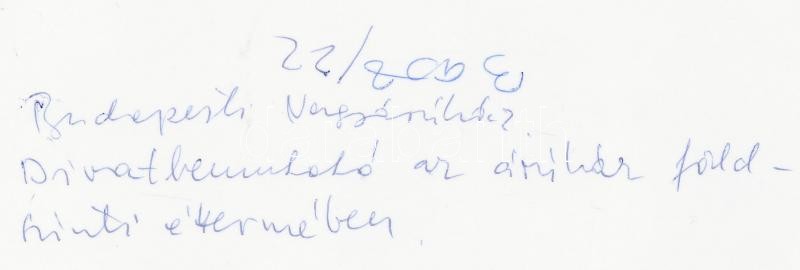 22/2003
Budapesti Nagyáruház.
Divatbemutató az áruház föld-
szinti éttermében.